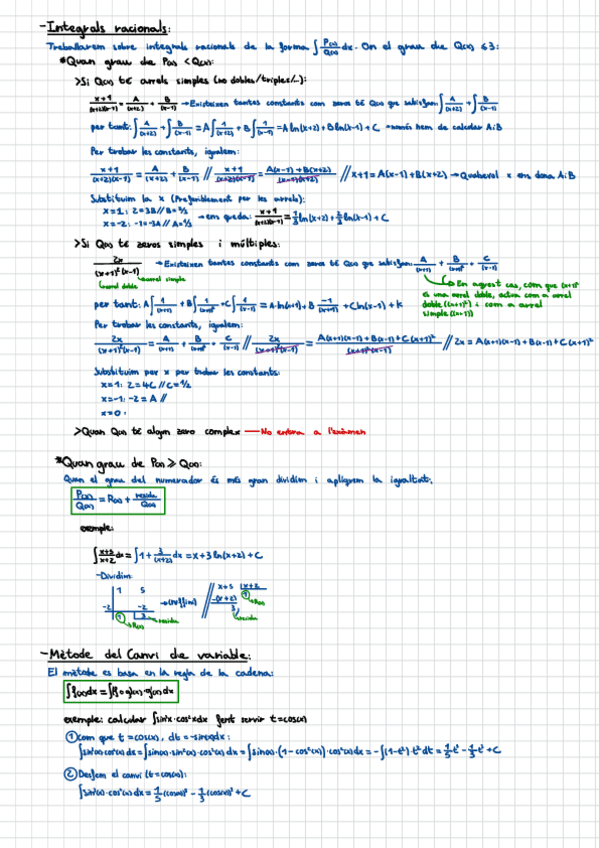 -Integrals racionals:
Treballarem sobre integrals racionals de la forma ∫ P(x)/Q(x) dx. On el grau de Q(x) ≤ 3:
*Quan grau de P(x) < Q(x):
>Si Q(x) té arrels simples (no dobles/triples/...):
(x+1)/((x+2)(x-1)) = A/(x+2) + B/(x-1) → Existeixen tantes constants com zeros té Q(x) que satisfan: ∫ A/(x+2) + ∫ B/(x-1)
per tant: ∫ A/(x+2) + ∫ B/(x-1) = A ∫ 1/(x+2) + B ∫ 1/(x-1) = A ln(x+2) + B ln(x-1) + C → només hem de calcular A i B
Per trobar les constants, igualem:
(x+1)/((x+2)(x-1)) = A/(x+2) + B/(x-1) // (x+1)/((x+2)(x-1)) = (A(x-1) + B(x+2))/((x-1)(x+2)) // x+1 = A(x-1) + B(x+2) → Qualsevol x em dona A i B
Substituim la x (Preferiblement per les arrels):
x=1: 2=3B // B=2/3
x=-2: -1=-3A // A=1/3
→ em queda: (x+1)/((x+2)(x-1)) = 1/3 ln(x+2) + 2/3 ln(x-1) + C
>Si Q(x) té zeros simples i múltiples:
2x/((x+1)²(x-1)) → Existeixen tantes constants com zeros té Q(x) que satisfan: A/(x+1) + B/(x+1)² + C/(x-1)
arrel doble
arrel simple
En aquest cas, com que (x+1)²
és una arrel doble, actua com a arrel
doble ((x+1)²) i com a arrel
simple ((x+1))
per tant: A ∫ 1/(x+1) + B ∫ 1/(x+1)² + C ∫ 1/(x-1) = A·ln(x+1) + B -1/(x+1) + C ln(x-1) + K
Per trobar les constants, igualem:
2x/((x+1)²(x-1)) = A/(x+1) + B/(x+1)² + C/(x-1) // 2x/((x+1)²(x-1)) = (A(x+1)(x-1) + B(x-1) + C(x+1)²)/((x+1)²(x-1)) // 2x = A(x+1)(x-1) + B(x-1) + C(x+1)²
Substituim per x per trobar les constants:
x=1: 2=4C // C=1/2
x=-1: -2=A //
x=0:
>Quan Q(x) té algun zero complex — No entrarà a l'exàmen
*Quan grau de P(x) ≥ Q(x):
Quan el grau del numerador és més gran dividim i apliquem la igualtat:
P(x)/Q(x) = R(x) + residu/Q(x)
exemple:
∫ (x+5)/(x+2) dx = ∫ 1 + 3/(x+2) dx = x+3 ln(x+2) + C
-Dividim:
1 5
-2 -2
1 3
R(x)
residu
→ (ruffini)
// x+5 x+2
-(x+2) 1
3
R(x)
residu
-Mètode del Canvi de variable:
El mètode es basa en la regla de la cadena:
exemple: calcular ∫sin³x·cos²x dx fent servir t=cos(x)
① com que t = cos(x), dt = -sin(x)dx:
∫sin³(x)·cos²(x) dx = ∫sin(x)·sin²(x)·cos²(x) dx = ∫sin(x)·(1-cos²(x))·cos²(x) dx = -∫(1-t²)·t² dt = 1/5 t⁵ - 1/3 t³ + C
② Desfem el canvi (t=cos(x)):
∫sin³(x)·cos²(x) dx = 1/5 (cos(x))⁵ - 1/3 (cos(x))³ + C